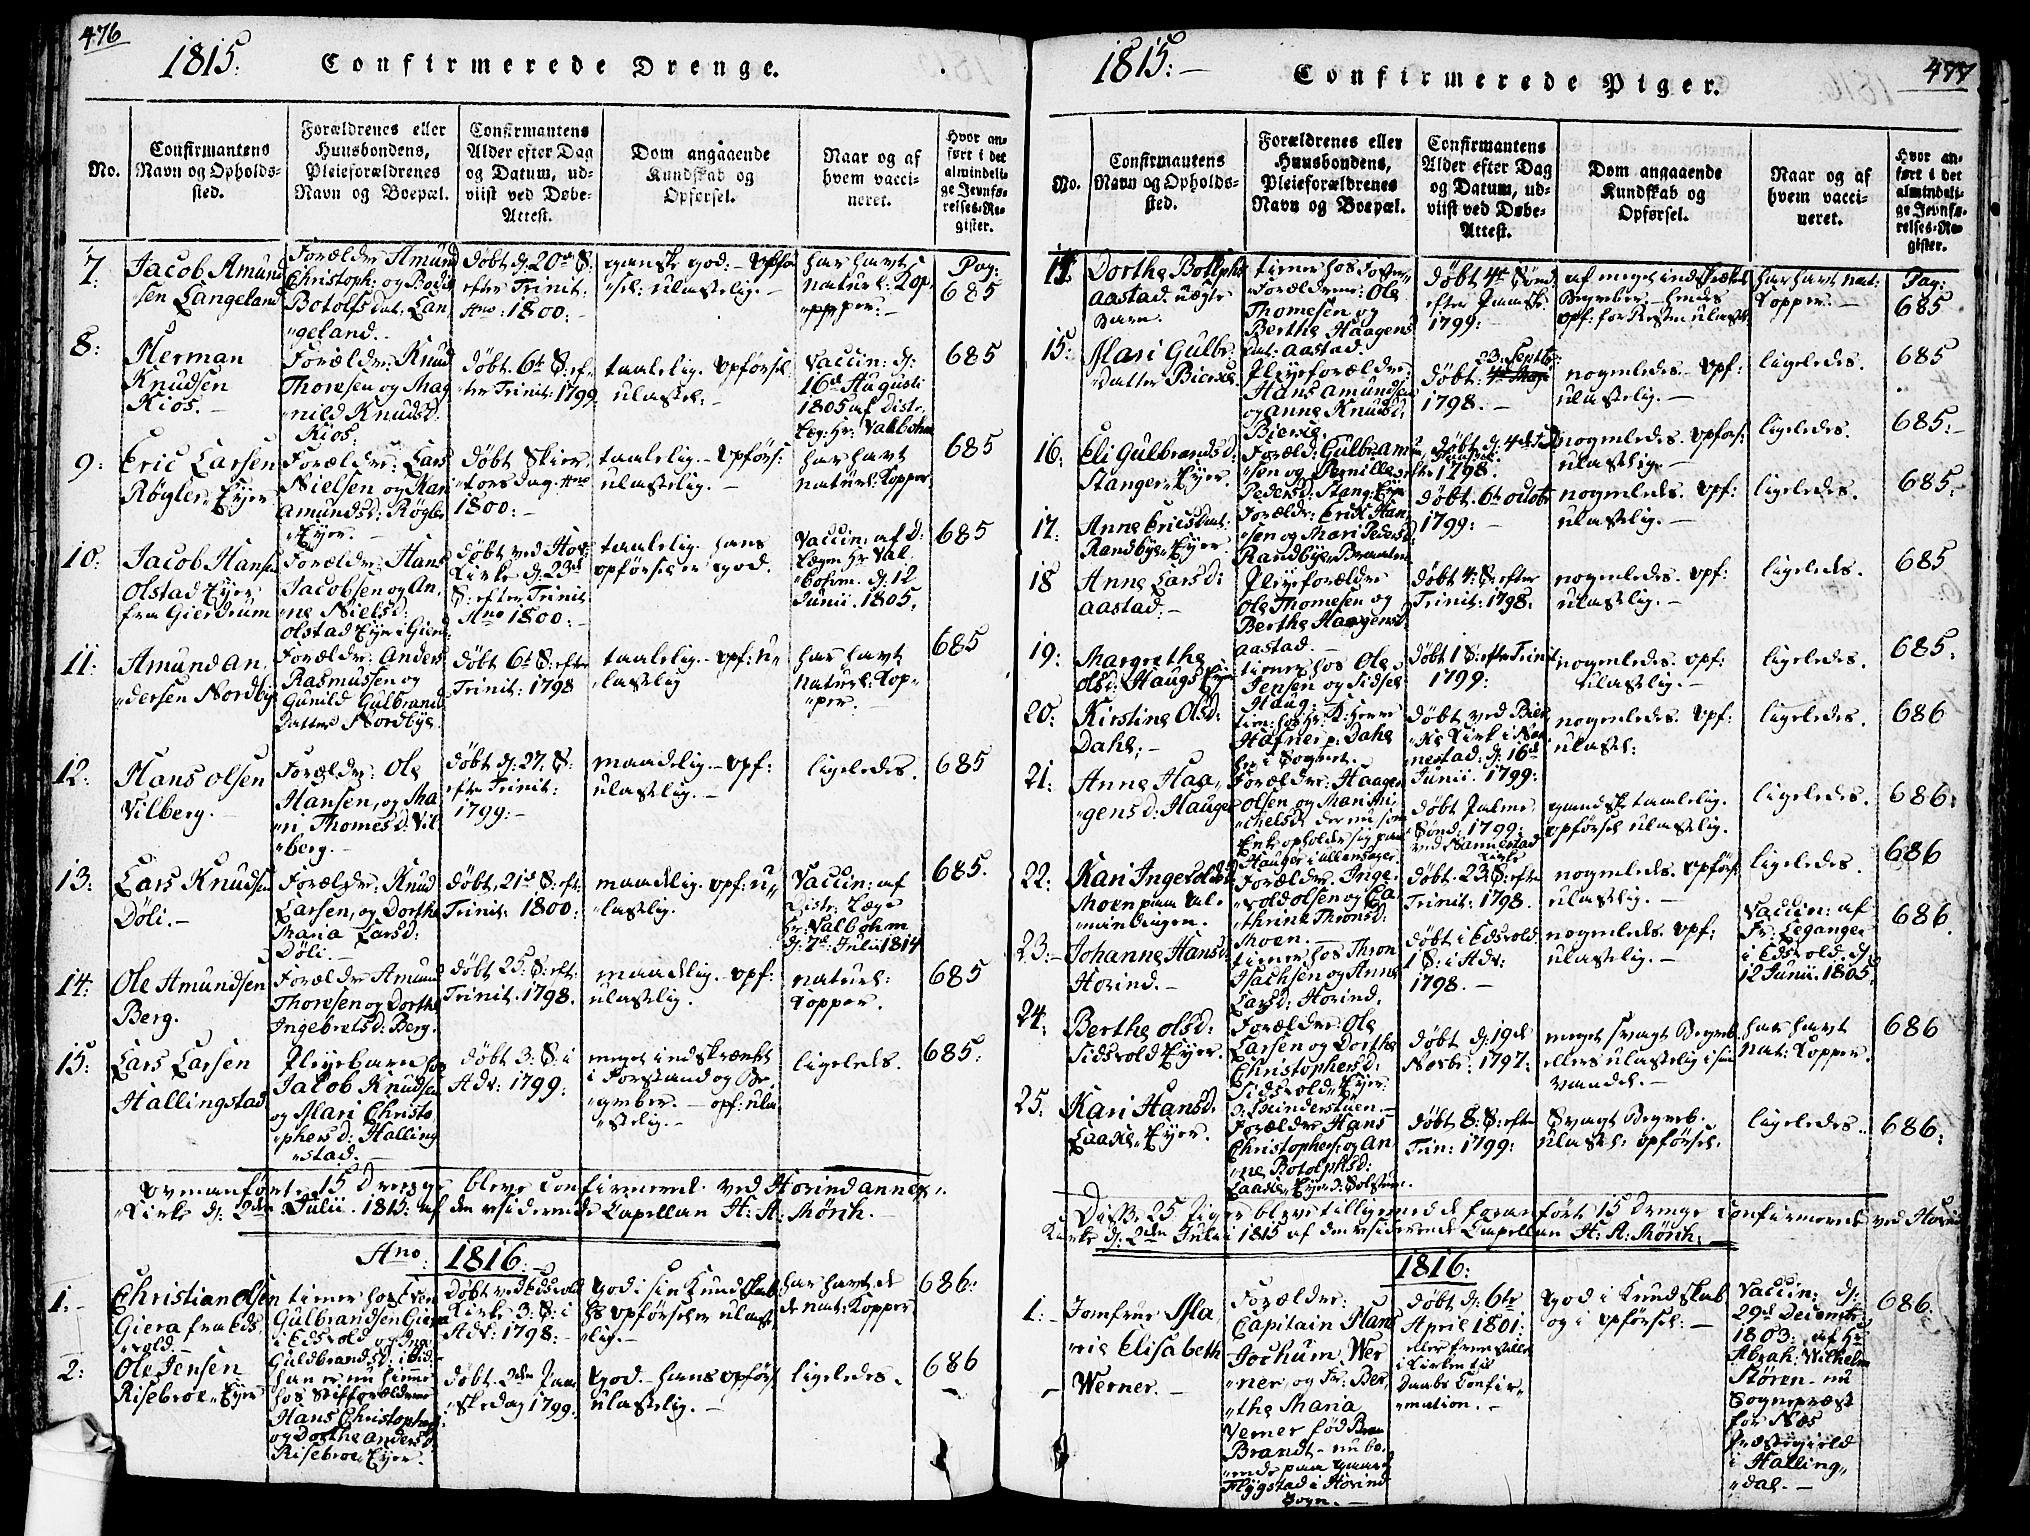 476
1815:
Confirmerede Drenge.
No.
Confirmantens
Navn og Opholds-
sted.
Forældrenes eller
Huusbondens,
Pleieforældrenes
Navn og Boepæl.
Confirmantens
Alder efter Dag
og Datum, ud-
viist ved Døbe-
Attest.
Dom angaaende
Kundskab og
Opførsel.
Naar og af
hvem vacci-
neret.
Hvor an-
ført i det
almindeli-
ge Jevnfø-
relses-Re-
gister.
7:
Jacob Amund
sen Langeland
Forældre Amund
Christoph: og Bodil
Botolfs dat: Lan
"geland.
Døbt d: 20de S:
efter Trinit:
Ano: 1800:
ganske god: – Opfø
"sel: ulastelig. –
har havt
naturl: Kop-
"per: –
Pag:
685
8:
Herman
Knudsen
Kios. –
Forældre: Knud
Thoresen og Mag
"nild Knudsd:
Kios:
døbt 6te S: ef-
"ter Trinit: 1799.
taalelig. Opførsel:
ulastel: –
Vaccin: d:
16de Augusti
1805 af Distr:
Læg: Hr: Valbohm
685
9:
Eric Larsen
Røgler, Eyer
Forældre: Lars
Nielsen og Kari
Amundsd: Røgler
Eyer. –
døbt Skier
"torsdag Ano
1800: –
taalelig. – Opførs:
ulastelig. –
har havt
naturl: Kopper
685
10:
Jacob Hansen
Olstad Eyer
fra Gierdrum
Forældre: Hans
Jacobsen og An,
"ne Nielsd:
Olstad Eyer i Gierd:
døbt ved Hov:
Kirke d: 23de
S: efter Trinit
Ano 1800: –
taalelig. hans
opførsel er god.
Vaccin: af D:
Lægen Hr Val
"bohm. d: 12
Junii. 1805.
685
11:
Amund An,
"dersen Nordbye
Forældre: Anders
Rasmussen og
Gunild Gulbrand
Datter Nordbye.
døbt 6te S: efter
Trinit: 1798
taalelig. – opf: u"
"lastelig
har havt
naturl: Kop"
"per. –
685
12:
Hans Olsen
Vilberg. –
Forældre: Ole
Hansen, og Ma
"ri Thomesd: Vil
"berg. –
døbt d: 27. S:
efter Trinit:
1799: –
maadelig. – Opf:
ulastelig. –
ligeledes.
685
13:
Lars Knudsen
Døli. –
Forældre: Knud
Larsen, og Dorthe
Maria Larsd:
Døli. –
døbt, 21de S: eft:
Trinit: 1800:
maadelig. opf: u"
"lastelig.
Vaccin: af
Distr: Læge
Hr: Valbohm
d: 7de Julii 1814
685.
14:
Ole Amundsen
Berg.
Forældre Amund
Thoresen og Dorthe
Ingebretsd: Berg.
døbt 25: S: eft:
Trinit. 1798.
maadelig. – opf:
ulastelig.
naturl:
Kopper.
685
15:
Lars Larsen
Hallingstad
Pleyebarn hos
Jacob Knudsen
og Mari Christo
"phersd: Halling
"stad. –
døbt 3: S: i
Adv: 1799:
meget indskrænket
i Forstand og Be"
"greber. – opf: ula"
"stelig. –
ligeleds.
685:
Ovenanførte 15 Drenge bleve Confirmerede ved Hovind Annex"
"Kirke d: 2den Julii. 1815: af den residerende Capellan H: A: Mörch. –
Ano: 1816: –
1: –
Christian Olsen
Giera fra Eds
"vold. –
tiener hos Iver
Gulbrandsen Giera
i Edsvold og Inge
Guldbrandsd:
Døbt ved Edsvold
Kirke 3: S: i
Adv: 1798: –
God i sin Kundskab
Hs opførsel er ulaste
"lig. –
har havt de
nat: Kopper
686:
2:
Ole Jensen
Risebroe Eyer
han er nu hieme
hos Stifforældrene
Hans Christophers:
og Dorthe Andersd:
Risebroe Eyer.
døbt 2den Paa
"skedag 1799:
God. – hans opførs
ulastelig. –
ligeledes.
686
1815: –
Confirmerede Piger.
477
No.
Confirmantens
Navn og Opholds-
sted.
Forældrenes eller
Huusbondens,
Pleieforældrenes
Navn og Boepæl.
Confirmantens
Alder efter Dag
og Datum, ud-
viist ved Døbe-
Attest.
Dom angaaende
Kundskab og
Opførsel.
Naar og af
hvem vacci-
neret.
Hvor an-
ført i det
almindeli-
ge Jevnfø-
relses-Re-
gister.
14:
Dorthe Bottolphs
Aastad. uægte
Barn.
tiener hos Foster"
"Forældrene: Ole
Thomesen og
Berthe Haagens
Dat: Aastad.
døbt 4de Sønd:
efter Paaske
1799:
af meget indskrænket
Begreber. – hendes
opf: for Resten ulastel:
har havt nat:
Kopper. –
Pag:
685
15:
Mari Gulbr:
"datter Bierke
Pleyeforældre:
Hans Amundsen
og Anne Knudsd:
Bierke.
døbt: 23: Septb:
1798. –
nogenledes. – Opf:
ulastelig. –
ligeledes.
685
16:
Eli Gulbrandsd:
Stanger Eyer.
Foræld: Gulbr: Am
"sen og Pernille
Pedersd: Stang: Eyer
døbt d: 4de S:
efter 1798.
nogenledes. Opførs:
ulastelig. –
ligeledes.
685: –
17:
Anne Ericsdat:
Randbye Eyer.
Forældr: Erick Han
"sen og Mari Pedersd:
Randbye Braaten
døbt. 6te Octobr
1799: –
nogenledes. Opf:
ulastelig. –
ligeledes.
685:
18
Anne Larsd:
Aastad: –
Pleyeforældre
Ole Thomesen og
Berthe Haagensd:
Aastad. –
døbt 4: S: efter
Trinit: 1798.
nogenledes. Opf:
ulastelig. –
ligeledes.
685
19:
Margrethe
Olsd: Haugs Eyer
tiener hos Ole
Jensen og Sidsel
Haug: –
døbt 1 S: efter Trinit
1799:
nogenledes. Opf:
ulastelig. –
ligeledes.
685:
20:
Kirstine Olsd:
Dahl: –
tien: hos Hr:
Hafner p: Dahl
her i Sognet.
døbt ved Bier,
"ke Kirke i Nan
nestad, d: 16de
Junii. 1799:
nogenledes. Opf:
ulastel:
ligeledes.
686
21:
Anne Haa,
"gensd: Hauger
Forældre: Haagen
Olsen og Mari Mi
"chelsd: der nu som
Enke opholder sig paa
Hauger i Ullensager.
døbt Palme
Sønd: 1799:
ved Nannestad
Kirke
gandske taalelig.
opførsel ulastelig.
ligeledes.
686:
22:
Kari Ingevoldsd:
Moen paa Al
"mindingen.
Forældre. Inge"
"vold Olsen og Ca
"thrine Thronsd:
Moen. –
døbt. 23: S: efter
Trinit: 1798.
nogenledes. Opførs:
ulastelig. –
ligeledes.
686
23: –
Johanne Hansd:
Hovind. –
tiener hos Thron
Isachsen og Anne
Larsd: Hovind.
døbt i Edsvold
1 S: i Adv:
1798. –
nogenledes. Opf:
ulastelig. –
Vaccin: af
Fr: Leganger
i Edsvold. d:
12 Junii. 1805
686.
24:
Berthe Olsd:
Sidsvold Eyer.
Forældre: Ole
Larsen og Dorthe
Christophersd:
Sidsvold Eyer:
døbt d: 19de
Novbr: 1797:
meget svagt Begreb.
ellers ulastelig i sin
vandel. –
har havt
nat: Kopper.
686
25:
Kari Hansd.
Laake, Eyer.
Forældre Hans
Christophers: og An
"ne Botolphsd:
Laake, Eyer
døbt 8: S: efter
Trin: 1799:
Svagt Begreb.
Ulastel: opførsel.
ligeledes.
686:
Disse 25 Piger bleve tilligemed de foranførte 15 Drenge Confirmerede ved Hovind
Kirke d: 2den Julii 1815 af den residerende Capellan H: A: Mörch. –
1816:
1: –
Jomfrue Ma
"rie Elisabeth
Werner. –
Forældre:
Capitain Hans
Jochum Wer
"ner, og Fr: Ber,
"the Maria
Verner fød
Brandt – nu bo,
"ende paa gaard
Flygstad i Hovind
Sogn. –
døbt d: 6te
April 1801:
eller fremstillet
i Kirken til
Daabs Confir"
"mation. –
God i Kundskab
og i Opførsel: –
Vaccin: d:
29de Decembr:
1803: af Hr
Abrah: Wilhelm
Støren – nu
Sognepræst
for Næs
Præstegield
i Halling"
"dal. –
686: